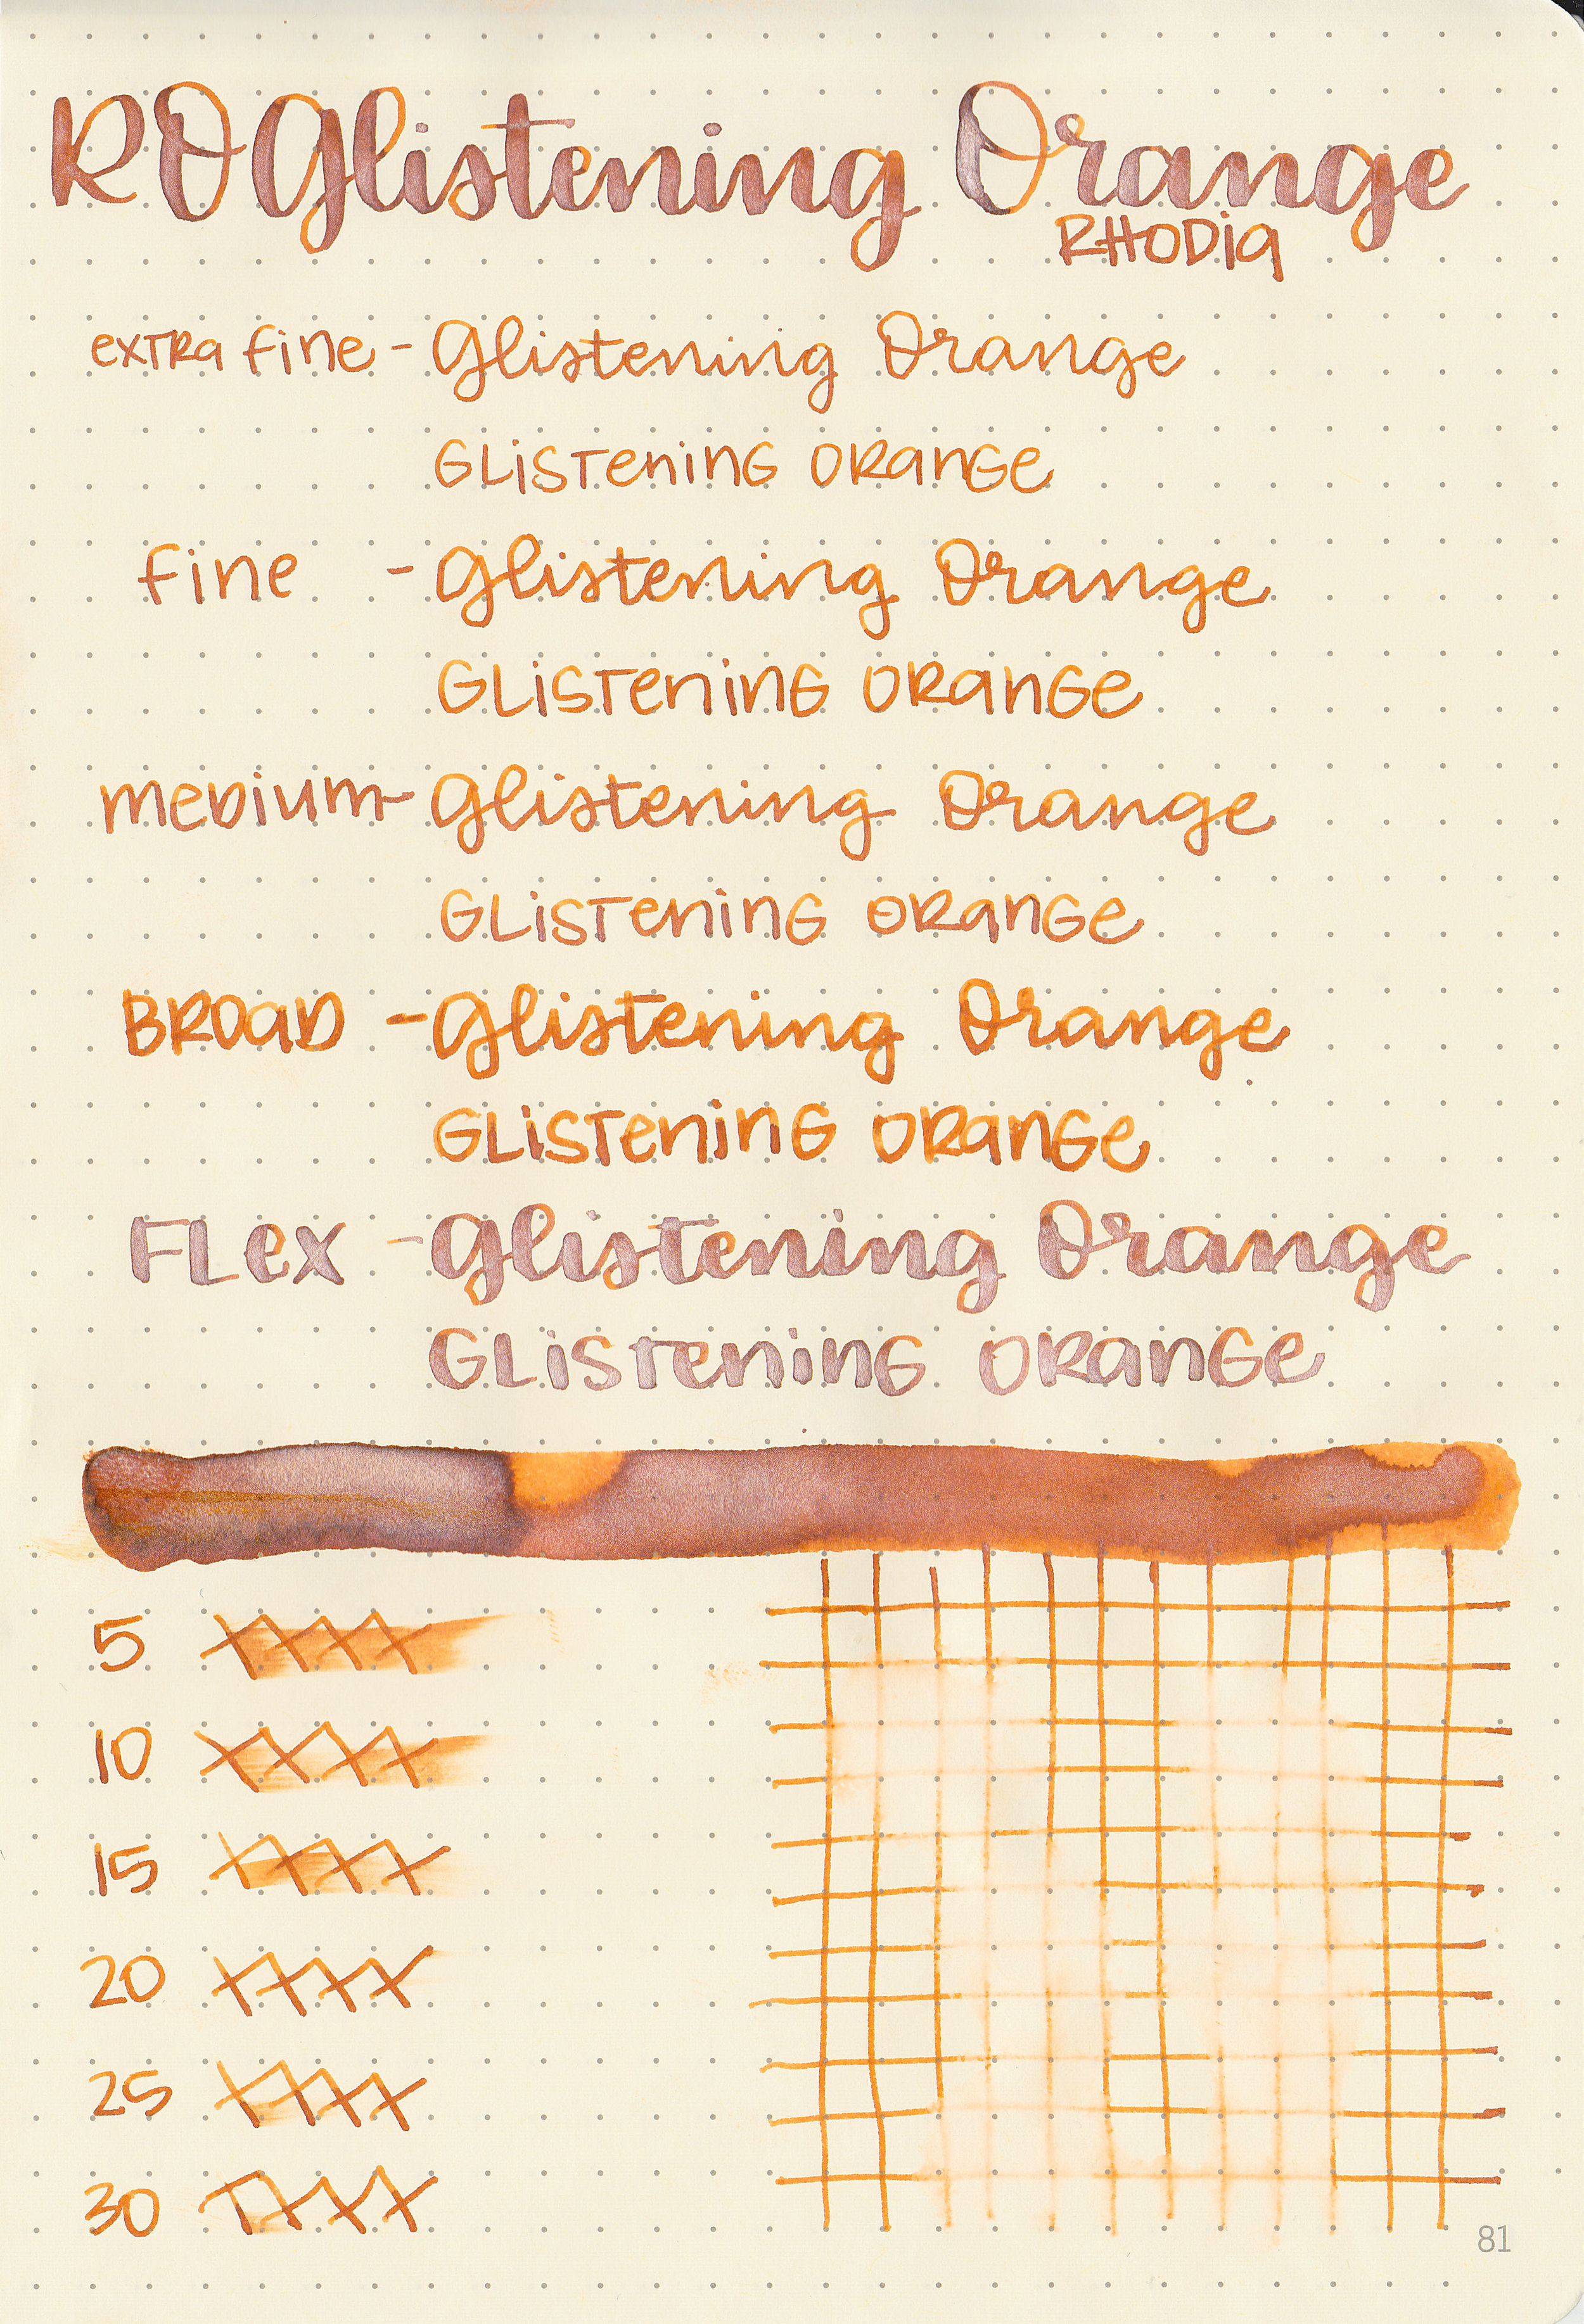 RO Glistening Orange
RHODIA
extra fine - Glistening Orange
GLISTENING ORANGE
fine - Glistening Orange
GLISTENING ORANGE
medium - Glistening Orange
GLISTENING ORANGE
BROAD - Glistening Orange
GLISTENING ORANGE
FLEX - Glistening Orange
GLISTENING ORANGE
5
10
15
20
25
30
81